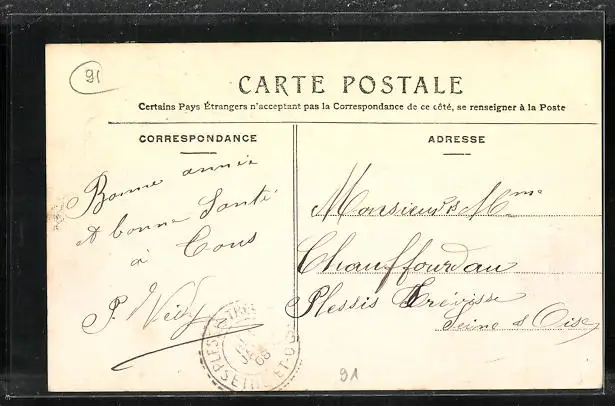 91
CARTE POSTALE
Certains Pays Étrangers n'acceptent pas la Correspondance de ce côté, se renseigner à la Poste
CORRESPONDANCE
Bonne année
et bonne Santé
à Tous
P.
ADRESSE
Monsieur & Mme
Chauffourdau
Plessis Trévisse
Seine & Oise
SEINE-ET-OISE
91